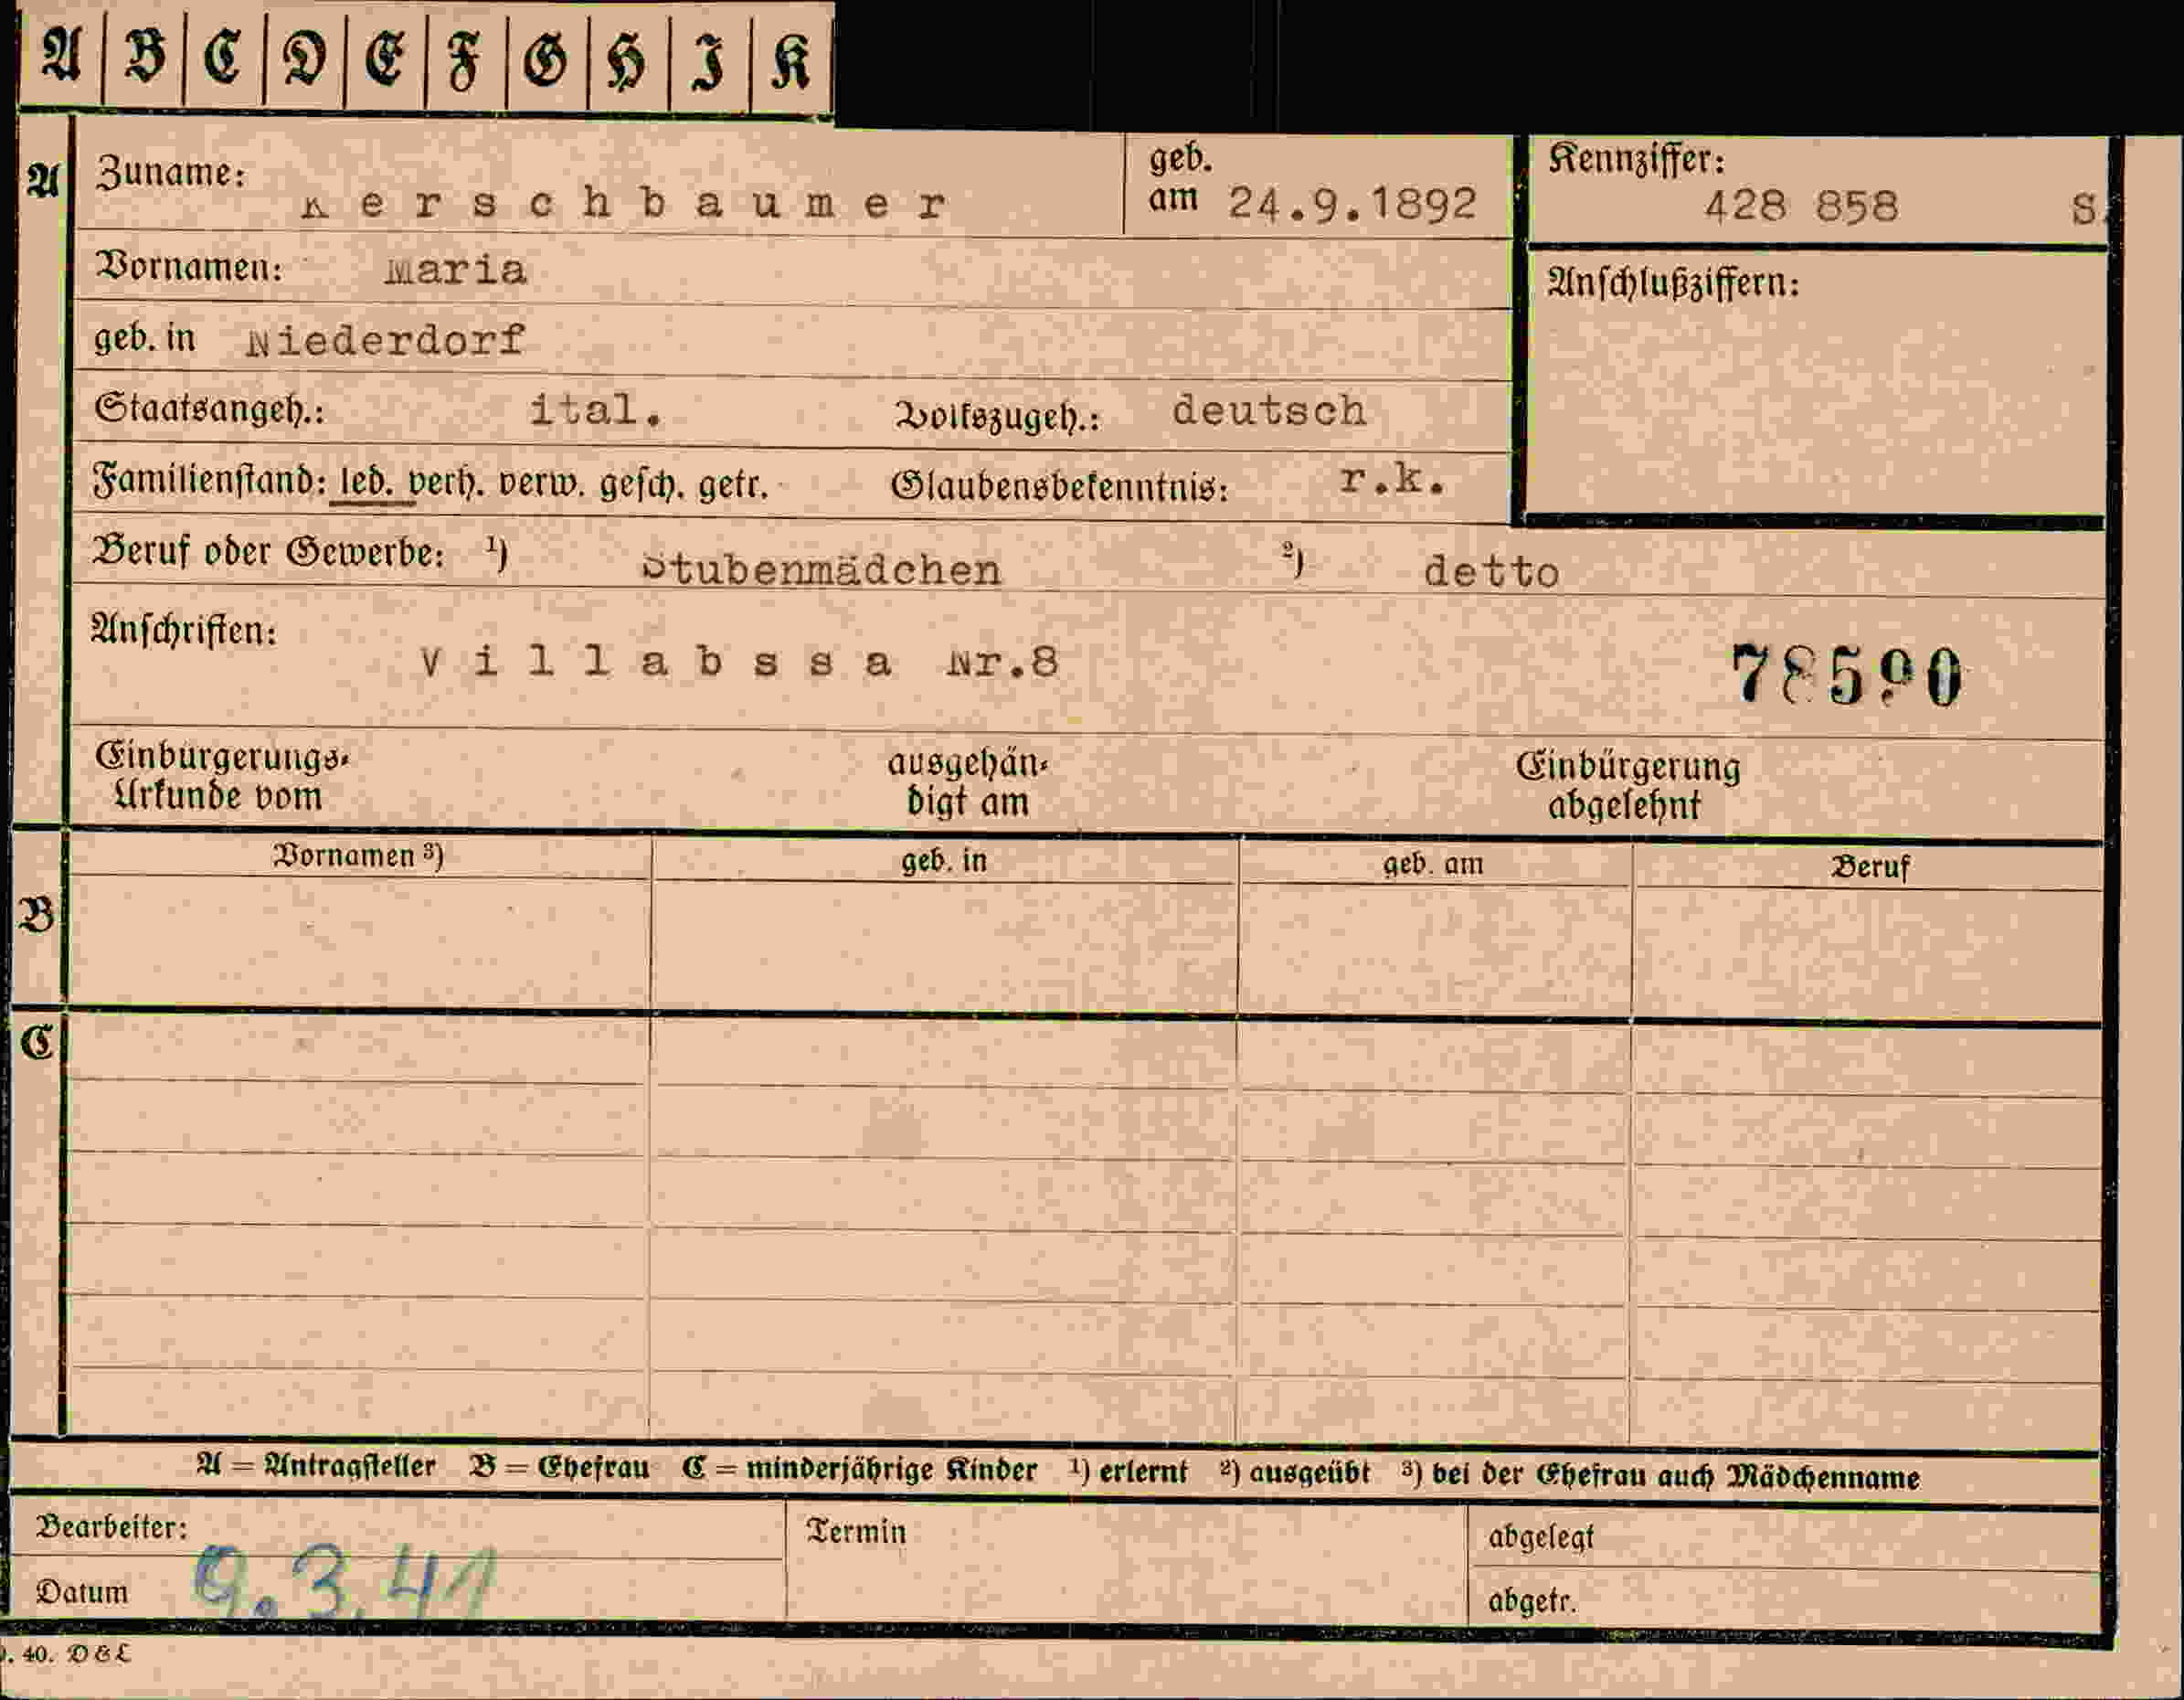 A B C D E F G H I K
A Zuname: Kerschbaumer geb. am 24.9.1892 Kennziffer: 428 858 S.
Vornamen: Maria Anschlußziffern:
geb. in Niederdorf
Staatsangeh.: ital. Volkszugeh.: deutsch
Familienstand: led. verh. verw. gesch. getr. Glaubensbekenntnis: r.k.
Beruf oder Gewerbe: ¹) Stubenmädchen ²) detto
Anschriften: Villabssa Nr.8 78590
Einbürgerungs-Urkunde vom ausgehän-digt am Einbürgerung abgelehnt
B Vornamen ³) geb. in geb. am Beruf
C
A = Antragsteller B = Ehefrau C = minderjährige Kinder ¹) erlernt ²) ausgeübt ³) bei der Ehefrau auch Mädchenname
Bearbeiter: Termin abgelegt
Datum 9.3.41 abgetr.
. 40. D & L